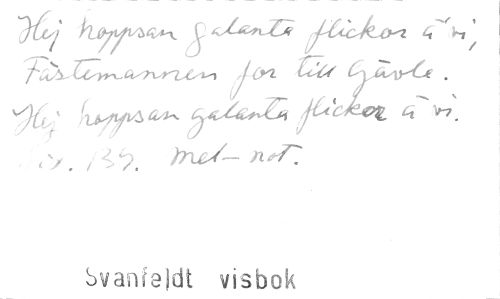 Hej hoppsan galanta flickor ä vi,
Fästemannen for till Gävle.
Hej hoppsan galanta flickor ä vi.
mel-not.
Svanfeldt visbok